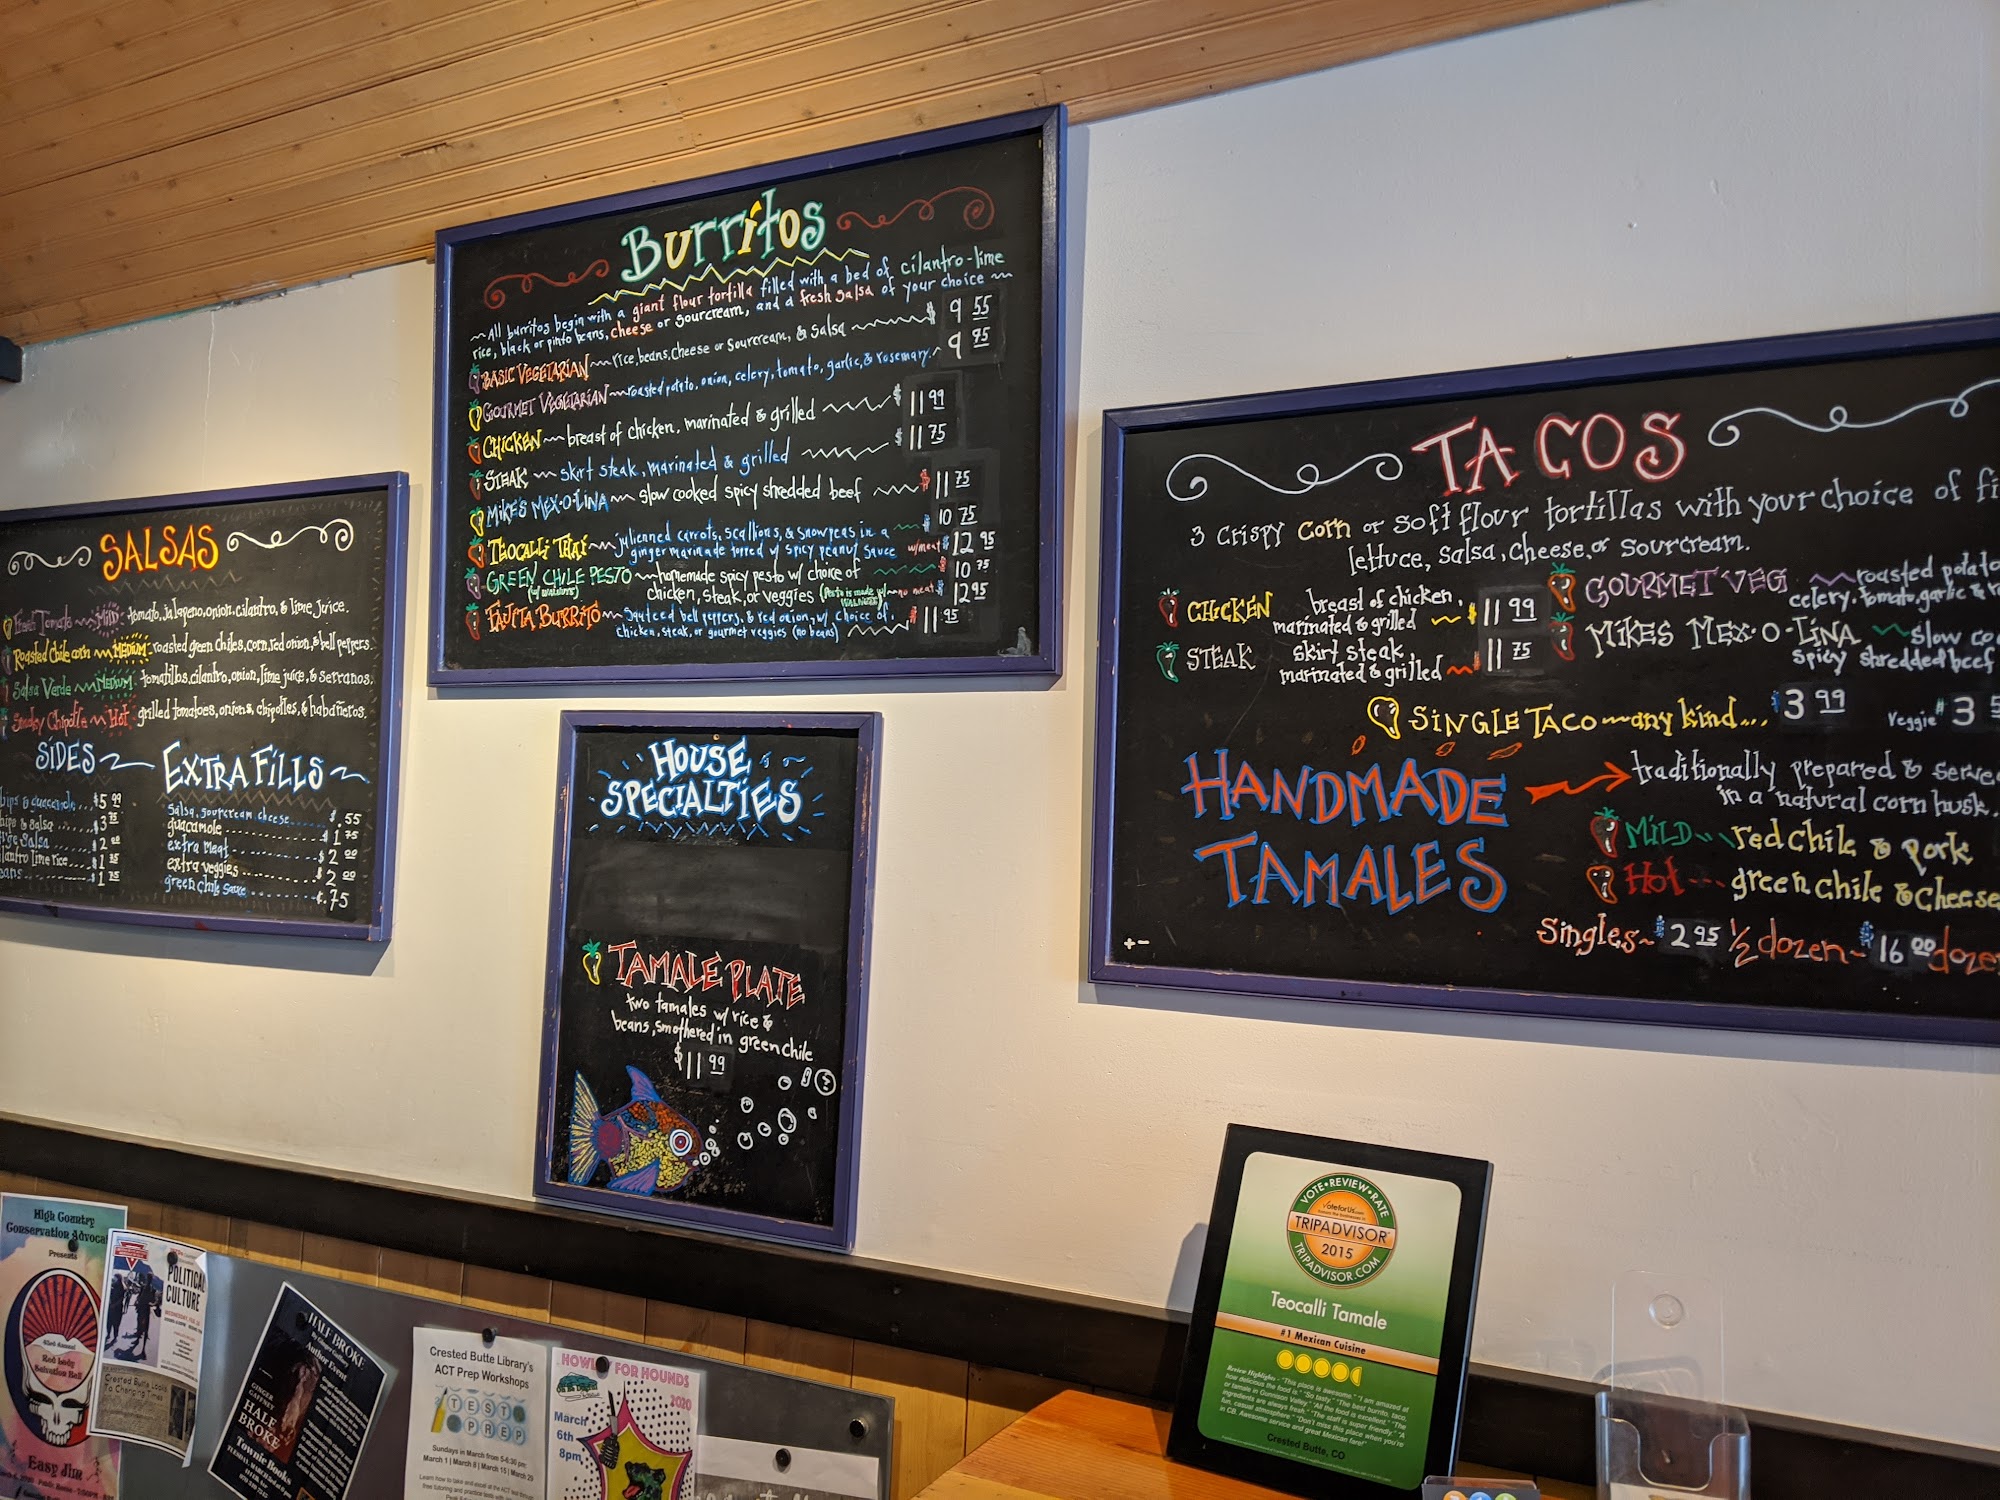 Burritos
~All burritos begin with a giant flour tortilla filled with a bed of cilantro-lime
rice, black or pinto beans, cheese or sourcream, and a fresh salsa of your choice~
BASIC VEGETARIAN~rice, beans, cheese or sourcream, & salsa $9 55
GOURMET VEGETARIAN~roasted potato, onion, celery, tomato, garlic, & rosemary. 9 75
CHICKEN~breast of chicken, marinated & grilled $11 99
STEAK~skirt steak, marinated & grilled $11 75
MIKE'S MEX-O-LINA~slow cooked spicy shredded beef $11 75
TEOCALLI THAI~julienned carrots, scallions, & snowpeas, in a $10 75
ginger marinade topped w/ spicy peanut sauce w/meat $12 95
GREEN CHILE PESTO~homemade spicy pesto w/ choice of $10 75
(w/ walnuts) chicken, steak, or veggies (Pesto is made w/ WALNUTS) no meat $12 95
FAJITA BURRITO~sauteed bell peppers, & red onion, w/ choice of
chicken, steak, or gourmet veggies (no beans) $11 95
SALSAS
Fresh Tomato~MILD~tomato, jalapeno, onion, cilantro, & lime juice.
Roasted Chile corn~MEDIUM~roasted green chiles, corn, red onion, & bell peppers.
Salsa Verde~MEDIUM tomatillos, cilantro, onion, lime juice, & serranos.
Smoky Chipotle~Hot grilled tomatoes, onions, chipotles, & habañeros.
SIDES
hips & guacamole...$5 99
hips & salsa.....$3 75
rge salsa.....$2 00
lantro lime rice....$1 25
eans....$1 75
EXTRA FILLS
salsa, sourcream, cheese.....$.55
guacamole.....$1 75
extra meat.....$2 00
extra veggies.....$2 00
green chile sauce.....$.75
HOUSE
SPECIALTIES
TAMALE PLATE
two tamales w/ rice &
beans, smothered in green chile
$11 99
TACOS
3 crispy corn or soft flour tortillas with your choice of fi
lettuce, salsa, cheese, or sourcream.
CHICKEN breast of chicken,
marinated & grilled $11 99
STEAK skirt steak,
marinated & grilled 11 75
GOURMET VEG roasted potato
celery, tomato, garlic & r
MIKES MEX-O-LINA slow co
spicy shredded beef
SINGLE TACO~any kind... $3 99 Veggie $3 5
HANDMADE
TAMALES
traditionally prepared & serve
in a natural corn husk.
MILD red chile & pork
Hot green chile & cheese
Singles~$2 95 1/2 dozen~$16 00 doze
VOTE•REVIEW•RATE
TRIPADVISOR
2015
TRIPADVISOR.COM
Teocalli Tamale
#1 Mexican Cuisine
Review Highlights - "This place is awesome." "I am amazed at
how delicious the food is." "So tasty." "The best burrito, taco,
or tamale in Gunnison Valley." "All the food is excellent." "The
ingredients are always fresh." "The staff is super friendly." "A
fun, casual atmosphere." "Don't miss this place when you're
in CB. Awesome service and great Mexican fare!"
Crested Butte, CO
High Country
Conservation Advocat
Presents
Red Lady
Salvation Ball
Easy Jim
POLITICAL
CULTURE
Crested Butte Looks
To Changing Times
HALF BROKE
By Ginger Gaffney
Author Event
GINGER
GAFFNEY
HALF
BROKE
Townie Books
Crested Butte Library's
ACT Prep Workshops
TEST
PREP
Sundays in March from 5-6:30 pm
March 1 | March 8 | March 15 | March 29
HOWL FOR HOUNDS
2020
March
6th
8pm